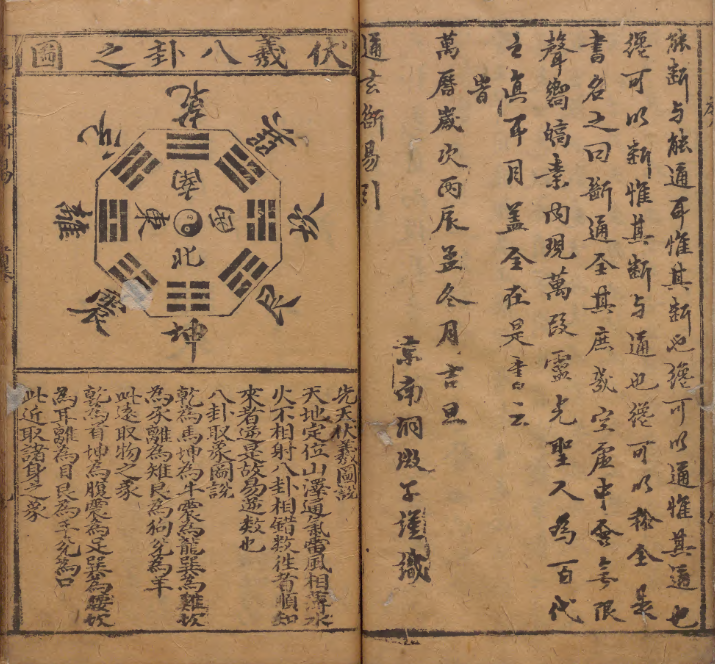 能斷与能通耳惟其斷也纔可以通惟其通也
纔可以斷惟其斷与通也纔可以稱全是
書名之曰斷通全其庶幾空虛中含無限
聲響縞素內現萬段靈光聖人為百代
之真耳目蓋全在是書云
旹
萬曆歲次丙辰孟冬月吉旦
京南洞子謹識
通玄斷易引
伏羲八卦之圖
乾
兌
巽
南
離
東
西
坎
北
震
艮
坤
先天伏羲圖說
天地定位山澤通氣雷風相薄水
火不相射八卦相錯數往者順知
來者逆是故易逆數也
八卦取象圖說
乾為馬坤為牛震為龍巽為雞坎
為豕離為雉艮為狗兌為羊
此遠取物之象
乾為首坤為腹震為足巽為腰坎
為耳離為目艮為手兌為口
此近取諸身之象